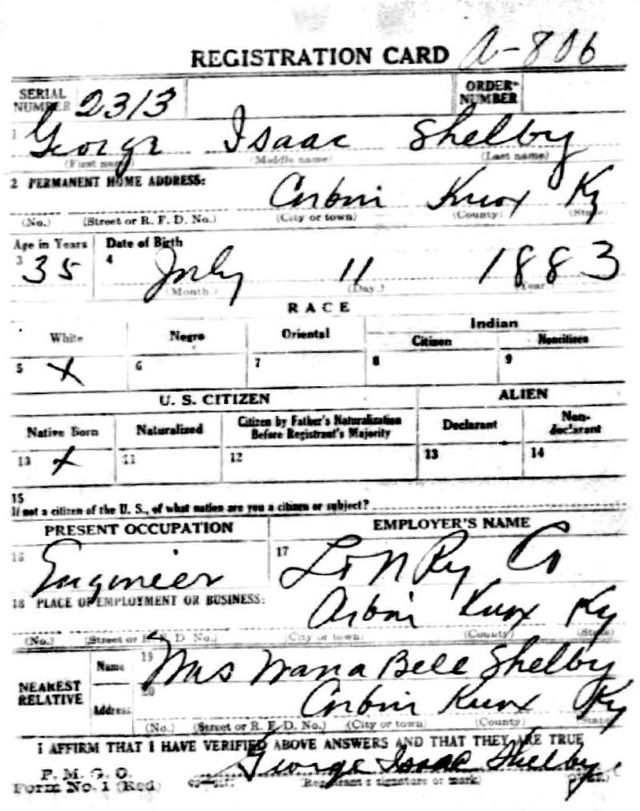 REGISTRATION CARD A-806
SERIAL NUMBER 2313 ORDER NUMBER
1 George Isaac Shelby
(First name) (Middle name) (Last name)
2 PERMANENT HOME ADDRESS: Corbin Knox Ky
(No.) (Street or R. F. D. No.) (City or town) (County) (State)
Age in Years Date of Birth
3 35 4 July 11 1883
(Month.) (Day.) (Year.)
RACE
White Negro Oriental Indian
Citizen Noncitizen
5 X 6 7 8 9
U. S. CITIZEN ALIEN
Native Born Naturalized Citizen by Father's Naturalization Before Registrant's Majority Declarant Non-declarant
10 X 11 12 13 14
15
If not a citizen of the U. S., of what nation are you a citizen or subject?
PRESENT OCCUPATION EMPLOYER'S NAME
16 Engineer 17 L & N Ry Co
18 PLACE OF EMPLOYMENT OR BUSINESS: Corbin Knox Ky
(No.) (Street or R. F. D. No.) (City or town) (County) (State)
NEAREST RELATIVE
Name 19 Mrs Nana Bell Shelby
Address 20 Corbin Knox Ky
(No.) (Street or R. F. D. No.) (City or town) (County) (State)
I AFFIRM THAT I HAVE VERIFIED ABOVE ANSWERS AND THAT THEY ARE TRUE
P. M. G. O.
Form No. 1 (Red) George Isaac Shelby
(Registrant's signature or mark)